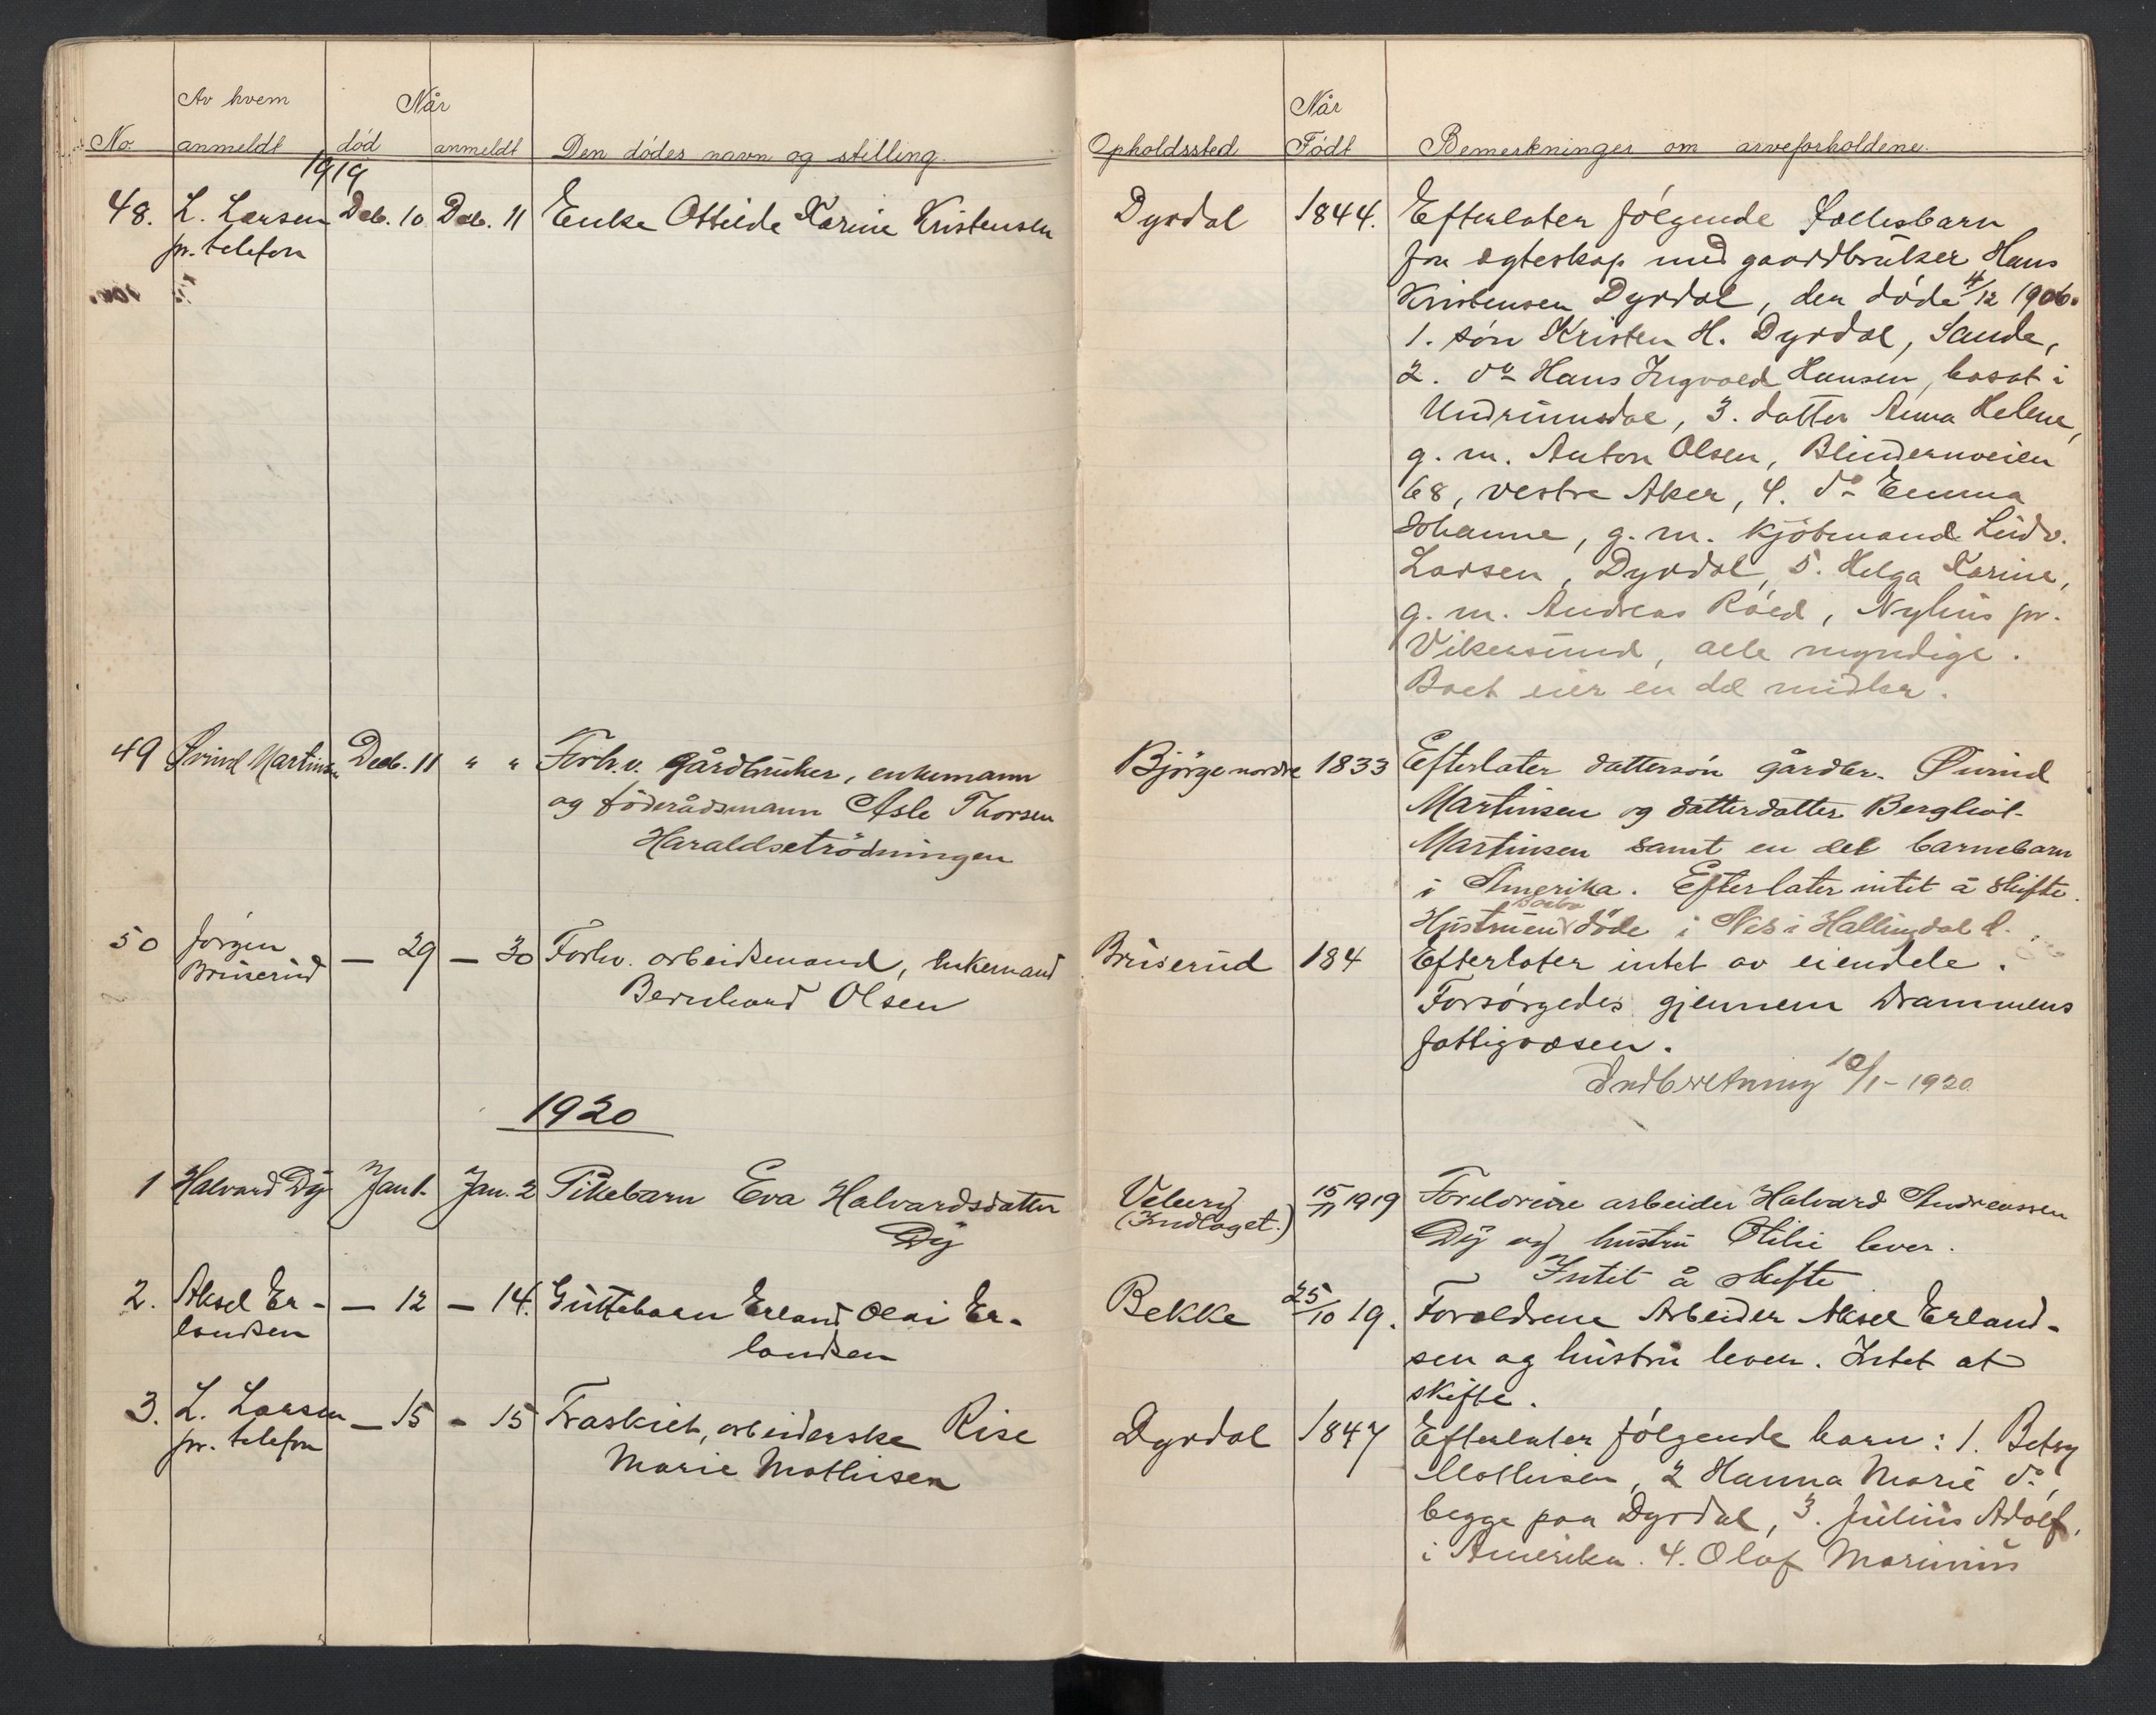 Av hvem Når Når
No. anmeldt død anmeldt Den dødes navn og stilling. Opholdssted Født Bemerkninger om arveforholdene.
1919
48. L. Larsen Deb. 10 Deb. 11 Enke Ottilde Karine Kristensen Dyrdal 1844. Efterlater følgende Fællesbarn
pr. telefon fra egteskap med gaardbruker Hans
Kristensen Dyrdal, den døde 4/12 1906.
1. søn Kristen H. Dyrdal, Sande,
2. do Hans Ingvald Hansen, bosat i
Undrumsdal, 3. datter Anna Helene,
g. m. Anton Olsen, Blindernveien
68, vestre Aker, 4. do Emma
Johanne, g. m. Kjøbmand Ludv.
Larsen, Dyrdal, 5. Helga Karine,
g. m. Andreas Røed, Nyhus pr.
Vikersund, alle myndige.
Boet eier en del midler.
49 Øvind Martinsen Deeb. 11 " " Forh.v. gårdbruker, enkemann Bjørge nordre 1833 Efterlater dattersøn gårdbr. Øvind
og föderådsmann Asle Thorsen Martinsen og datterdatter Bergliot
Haraldsetrödningen Martinsen samt en del barnebarn
i Amerika. Efterlater intet å skifte.
Hustruen Barbo döde i Nes i Hallingdal d.
50 Jørgen Bruserud — 29 — 30 Forhv. arbeidsmand, Enkemand Bruserud 184 Efterlater intet av eiendele.
Bernhard Olsen Forsørgedes gjennem Drammens
fattigvæsen.
Indberetning 10/1-1920
1920
1 Halvard Dÿ Jan 1. Jan. 2 Pikebarn Eva Halvardsdatter Veberg 15/11 1919 Foreldrene arbeider Halvard Andreassen
Dÿ (Indlaget.) Dÿ og hustru Otilie lever.
Intet å skifte
2. Aksel Er- — 12 — 14. Guttebarn Erland Olai Er- Bekke 25/10 19. Foraldrene Arbeider Aksel Erland-
landsen landsen sen og hustru lever. Intet at
skifte.
3. L. Larsen — 15 - 15 Fraskilt, arbeiderske Rise Dyrdal 1847 Efterlater følgende barn: 1. Betsy
pr. telefon Marie Mathisen Mathisen, 2 Hanna Marie do,
begge paa Dyrdal, 3. Julius Adolf,
i Amerika. 4. Olaf Marinius